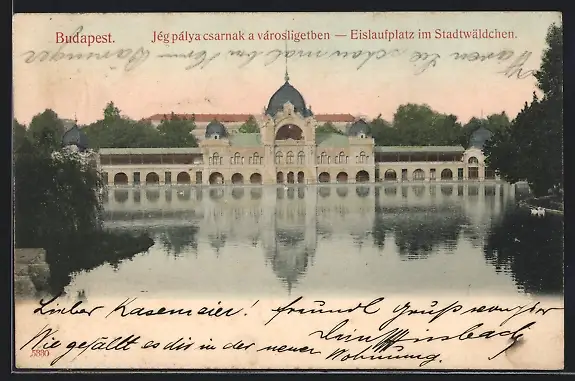 Budapest. Jég pálya csarnak a városligetben — Eislaufplatz im Stadtwäldchen.
Lieber Kasemaier! freundl Gruß von
Dein
Wie gefällt es dir in der neuen Wohnung
5880